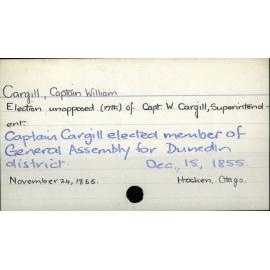 Cargill, Captain William
Election unopposed (17th) of Capt. W. Cargill, Superintend-
ent.
Captain Cargill elected member of
General Assembly for Dunedin
district. Dec., 15, 1855.
November 24, 1855. Hocken, Otago.